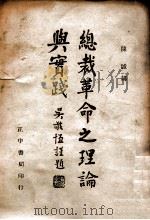 總裁革命之理論
與實踐
吳敬恆謹題
正中書局印行